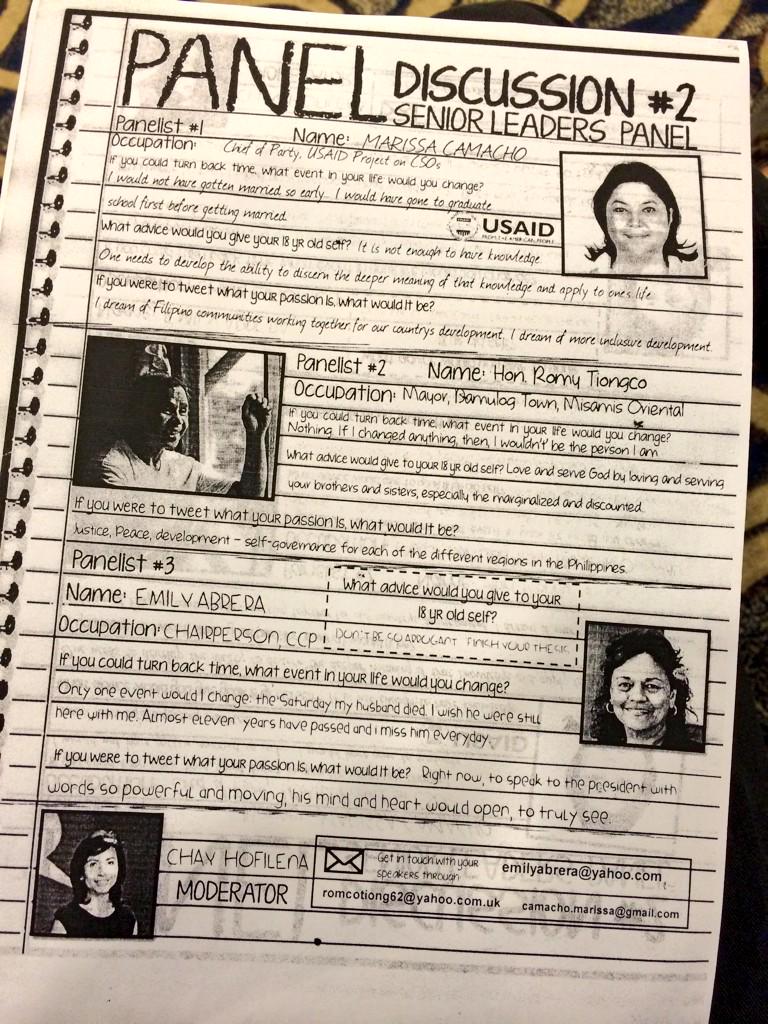 PANEL DISCUSSION #2
SENIOR LEADERS PANEL
Panelist #1 Name: MARISSA CAMACHO
Occupation: Chief of Party, USAID Project on CSOs
If you could turn back time, what event in your life would you change?
I would not have gotten married so early... I would have gone to graduate
school first before getting married.
USAID
FROM THE AMERICAN PEOPLE
What advice would you give your 18 yr old self? It is not enough to have knowledge.
One needs to develop the ability to discern the deeper meaning of that knowledge and apply to one's life
If you were to tweet what your passion is, what would it be?
I dream of Filipino communities working together for our country's development. I dream of more inclusive development.
Panelist #2 Name: Hon. Romy Tiongco
Occupation: Mayor, Damulog Town, Misamis Oriental
If you could turn back time, what event in your life would you change?
Nothing. If I changed anything, then, I wouldn't' be the person I am
What advice would give to your 18 yr old self? Love and serve God by loving and serving
your brothers and sisters, especially the marginalized and discounted.
If you were to tweet what your passion is, what would it be?
Justice, Peace, development - self-governance for each of the different regions in the Philippines.
Panelist #3
Name: EMILY ABRERA
Occupation: CHAIRPERSON, CCP
What advice would you give to your
18 yr old self?
DON'T BE SO ARROGANT. FINISH YOUR THESIS.
If you could turn back time, what event in your life would you change?
Only one event would I change: the Saturday my husband died. I wish he were still
here with me. Almost eleven years have passed and i miss him everyday.
If you were to tweet what your passion is, what would it be? Right now, to speak to the president with
words so powerful and moving, his mind and heart would open, to truly see.
CHAY HOFILENA
MODERATOR
Get in touch with your
speakers through
emilyabrera@yahoo.com
romcotiong62@yahoo.com.uk camacho.marissa@gmail.com